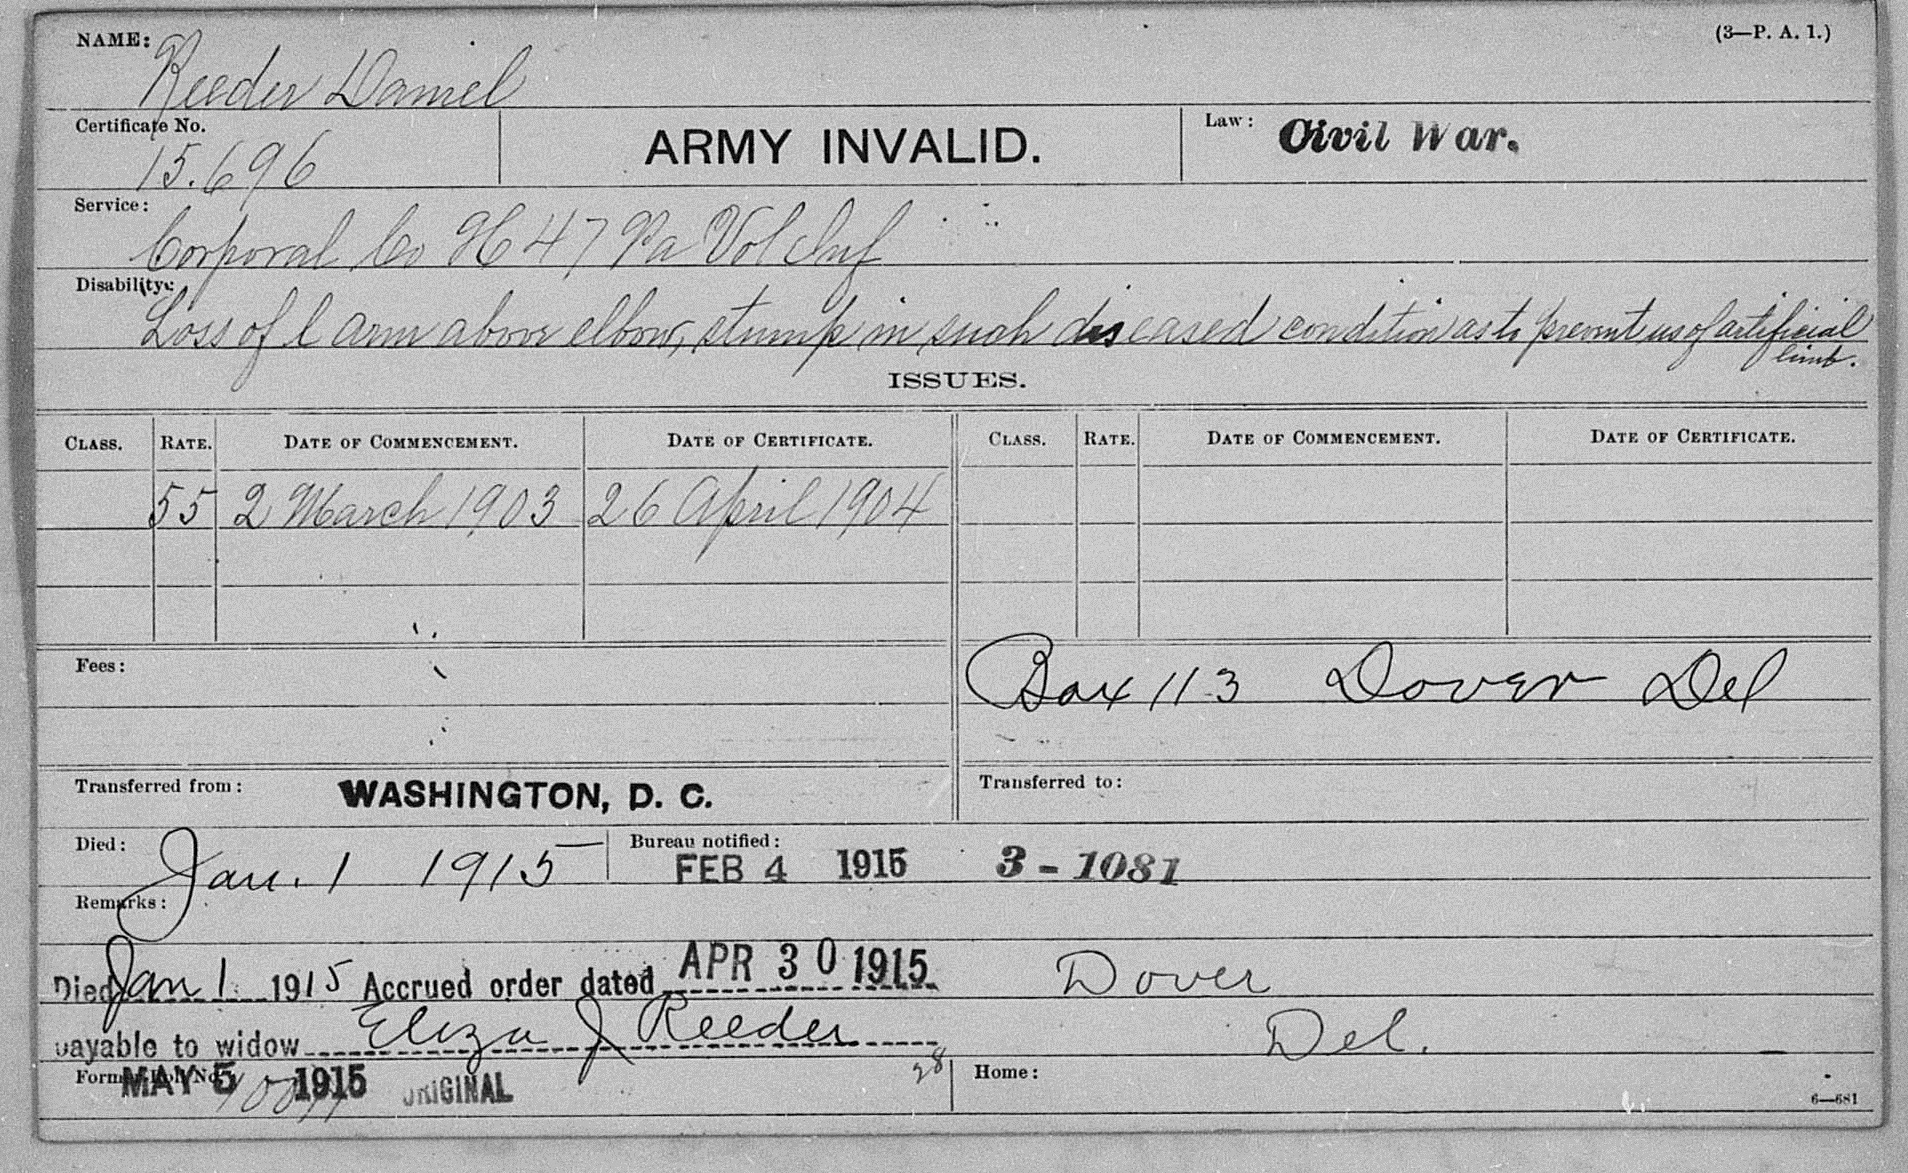 NAME: (3—P. A. 1.)
Reeder Daniel
Certificate No. ARMY INVALID. Law: Civil War.
15.696
Service:
Corporal Co H 47 Pa Vol Inf
Disability:
Loss of l arm above elbow, stump in such diseased condition as to prevent us of artificial
limb.
ISSUES.
CLASS. RATE. DATE OF COMMENCEMENT. DATE OF CERTIFICATE. CLASS. RATE. DATE OF COMMENCEMENT. DATE OF CERTIFICATE.
55 2 March 1903 26 April 1904
Fees: Box 113 Dover Del
Transferred from: WASHINGTON, D. C. Transferred to:
Died: Jan. 1 1915 Bureau notified: FEB 4 1915 3-1081
Remarks:
Died Jan 1 1915 Accrued order dated APR 30 1915 Dover
payable to widow Eliza J Reeder Del.
MAY 5 1915 ORIGINAL 28 Home:
6—681